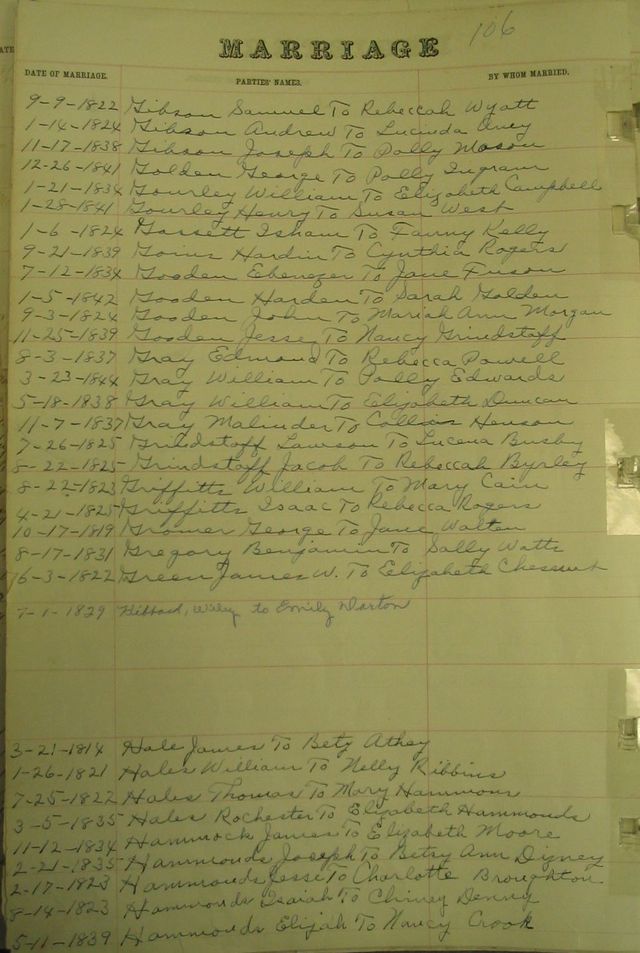 106
MARRIAGE
DATE OF MARRIAGE. PARTIES' NAMES. BY WHOM MARRIED.
9-9-1822 Gibson Samuel To Rebeccah Wyatt
1-14-1824 Gibson Andrew To Lucinda
11-17-1838 Gibson Joseph To Polly Mason
12-26-1841 Golden George To Polly Ingram
1-21-1834 Gourley William To Elizabeth Campbell
1-28-1841 Gourley Henry To Susan West
1-6-1824 Gossett Isham To Fanny Kelly
9-21-1839 Goins Hardin To Cynthia Rogers
7-12-1834 Gooden Ebenezer To Jane Fuson
1-5-1842 Gooden Harden To Sarah Golden
9-3-1824 Gooden John To Mariah Ann Morgan
11-25-1839 Gooden Jesse To Nancy Grindstaff
8-3-1837 Gray Edmond To Rebecca Powell
3-23-1844 Gray William To Polly Edwards
5-18-1838 Gray William To Elizabeth Duncan
11-7-1837 Gray Malinder To Henson
7-26-1825 Grindstaff Lawson To Lucena Busby
8-22-1825 Grindstaff Jacob To Rebeccah Byrley
8-22-1823 Griffitts William To Mary Cain
4-21-1825 Griffitts Isaac To Rebecca Rogers
10-17-1819 Gromer George To Jane Walten
8-17-1831 Gregory Benjamin To Sally Watts
6-3-1822 Green James W. To Elizabeth Chesnut
7-1-1829 Hibbard, Wiley to Emily Dorton
3-21-1814 Hale James To Bety Athey
1-26-1821 Hales William To Nelly Ribbins
7-25-1822 Hales Thomas To Mary Hammons
3-5-1835 Hales Rochester To Elizabeth Hammonds
11-12-1834 Hammock James To Elizabeth Moore
2-21-1835 Hammonds Joseph To Betsy Ann Digney
2-17-1823 Hammonds Jesse To Charlotte Broughton
8-14-1823 Hammonds Isaiah To Chiney Denny
5-11-1839 Hammonds Elijah To Nancy Crook